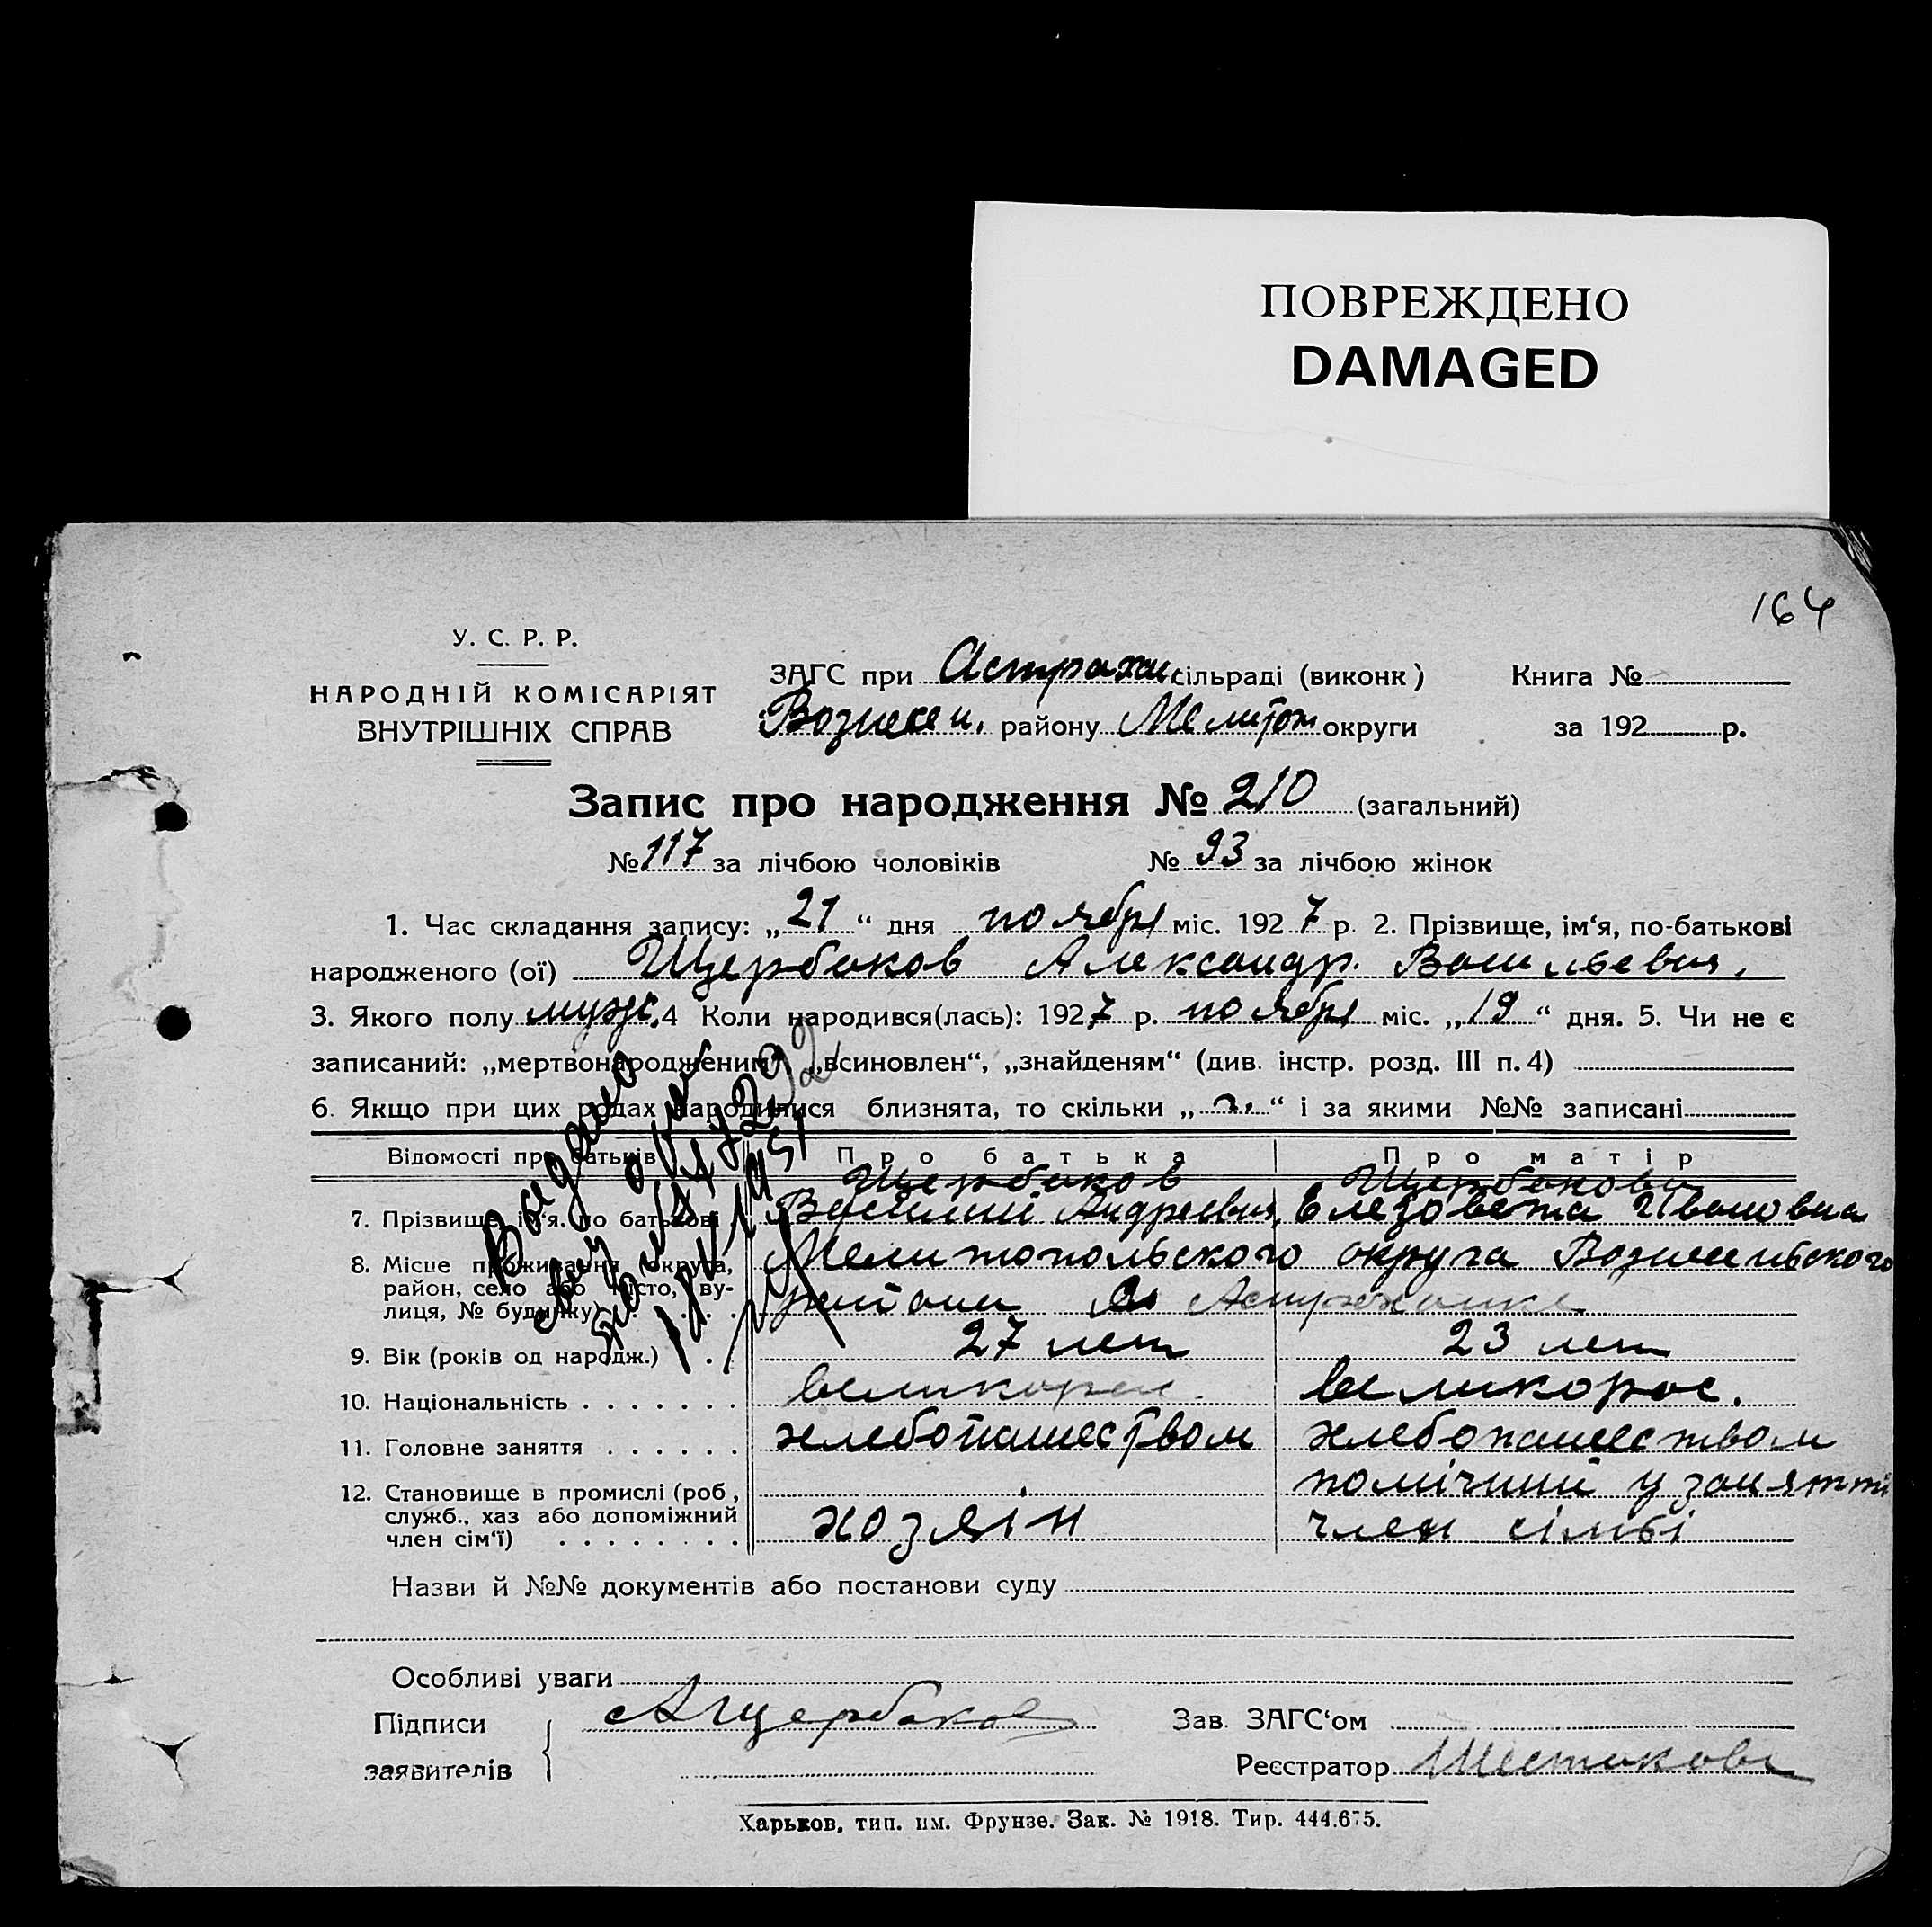 ПОВРЕЖДЕНО
DAMAGED
164
У. С. Р. Р.
НАРОДНІЙ КОМІСАРІЯТ
ВНУТРІШНІХ СПРАВ
ЗАГС при Астрахан сільраді (виконк) Книга №
Вознесен. району Мелитоп округи за 192 р.
Запис про народження № 210 (загальний)
№ 117 за лічбою чоловіків № 93 за лічбою жінок
1. Час складання запису: „21“ дня ноября міс. 1927 р. 2. Прізвище, ім‘я, по-батькові
народженого (ої) Щербаков Александр. Васильевич.
3. Якого полу мужс. 4 Коли народився(лась): 1927 р. ноября міс. „19“ дня. 5. Чи не є
записаний: „мертвонародженим“, „всиновлен“, „знайденям“ (див. інстр. розд. III п. 4)
6. Якщо при цих родах народилися близнята, то скільки „ “ і за якими №№ записані
Відомості про батьків Про батька Про матір
Щербаков Щербакова
7. Прізвище, ім‘я, по батькові Василий Андреевич, Елезовета Ивановна
8. Місце проживання (округа, район, село або місто, вулиця, № будинку) Мелитопольского округа Вознесенского
района Астраханка
9. Вік (років од народж.) 27 лет 23 лет
10. Національність великорос. великорос.
11. Головне заняття хлебопашеством хлебопашеством
12. Становище в промислі (роб., служб., хаз або допоміжний член сім‘ї) хозяін помічний у занятті
член сімьі
Выдано
Назви й №№ документів або постанови суду
Особливі уваги
Підписи заявителів АЩербаков Зав. ЗАГС‘ом
Реєстратор Шестакова
Харьков, тип. им. Фрунзе. Зак. № 1918. Тир. 444.675.